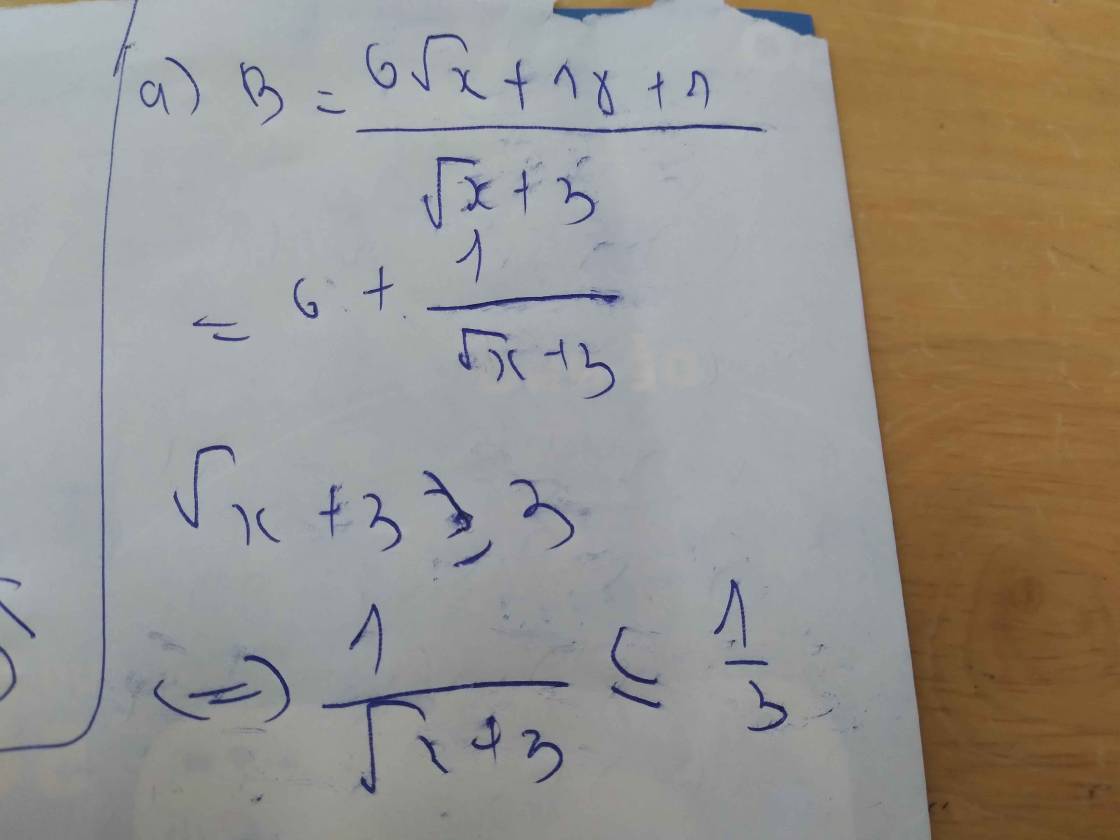 a) B = (6√x + 18 + 1)/(√x + 3)
= 6 + 1/(√x + 3)
√x + 3 ≥ 3
(=) 1/(√x + 3) ≤ 1/3